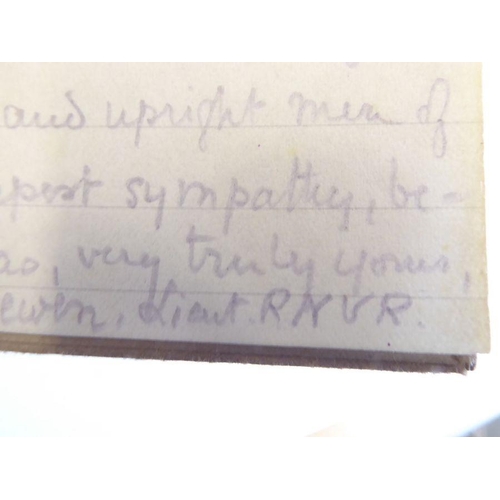 and upright men of
pest sympathy, be-
ao, very truly yours,
ewen, Lieut. RNVR.